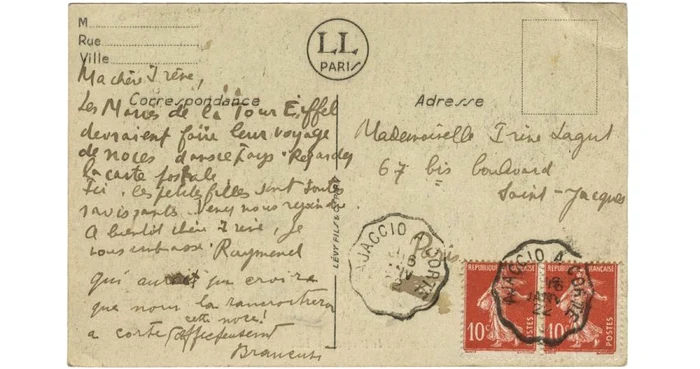 M
Rue
Ville
LL
PARIS
Correspondance
Adresse
Ma chère Irène,
Les Mariés de la Tour Eiffel
devraient faire leur voyage
de noces dans ce Pays. Regardez
la carte postale
Ici, les petites filles sont toutes
ravissantes. Venez nous rejoindre
A bientôt chère Irène, je
vous embrasse. Raymond
qui aurait pu croire
que nous la rancontrerions
cette noce!
a corte affectueusement
Brancusi
LÉVY FILS &
Mademoiselle Irène Lagut
67 bis boulevard
Saint-Jacques
Paris
AJACCIO A CORTE
AJACCIO A CORTE
18
JANV
22
REPUBLIQUE FRANÇAISE
10c
POSTES
REPUBLIQUE FRANÇAISE
10c
POSTES